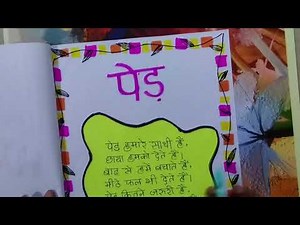 पेड़
पेड़ हमारे साथी हैं,
छाया हमको देते हैं।
बाढ़ से हमें बचाते हैं,
मीठे फल भी देते हैं।
पेड़ कितने जरूरी हैं,